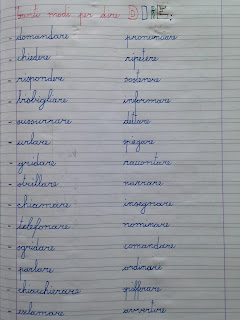 Tanti modi per dire DIRE:
- domandare pronunciare
- chiedere ripetere
- rispondere sostenere
- bisbigliare informare
- sussurrare dettare
- urlare spiegare
- gridare raccontare
- strillare narrare
- chiamare insegnare
- telefonare nominare
- sgridare comandare
- parlare ordinare
- chiacchierare spifferare
- esclamare avvertire